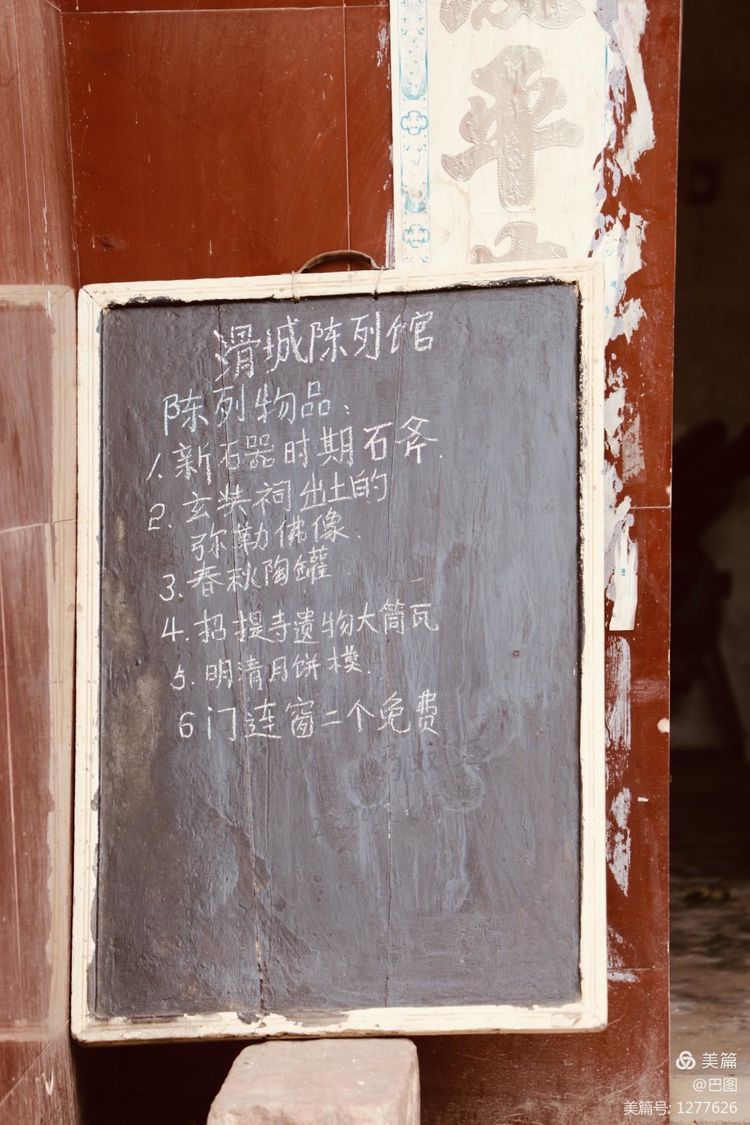 平
滑城陈列馆
陈列物品：
1. 新石器时期石斧.
2. 玄奘祠出土的
弥勒佛像.
3. 春秋陶罐
4. 招提寺遗物大筒瓦
5. 明清月饼模.
6 门连窗二个免费
美篇
@巴图
美篇号: 1277626